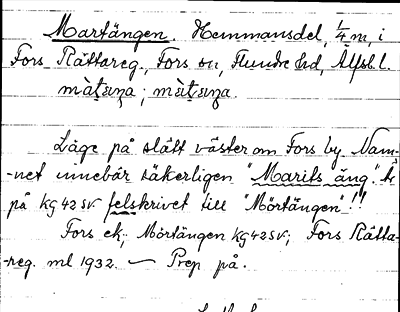 Martängen. Hemmansdel, 1/4 m, i
Fors Rättareg., Fors sn, Flundre hd, Älfsb. l.
màt̥sıŋa; màt̥sıŋa.
Läge på slätt väster om Fors by. Nam-
-net innebär säkerligen "Marits äng".
på KG 42 SV felskrivet till "Mörtängen"!!
Fors ek; Mörtängen KG 42 SV; Fors Rätta-
-reg. ml 1932. — Prep på.